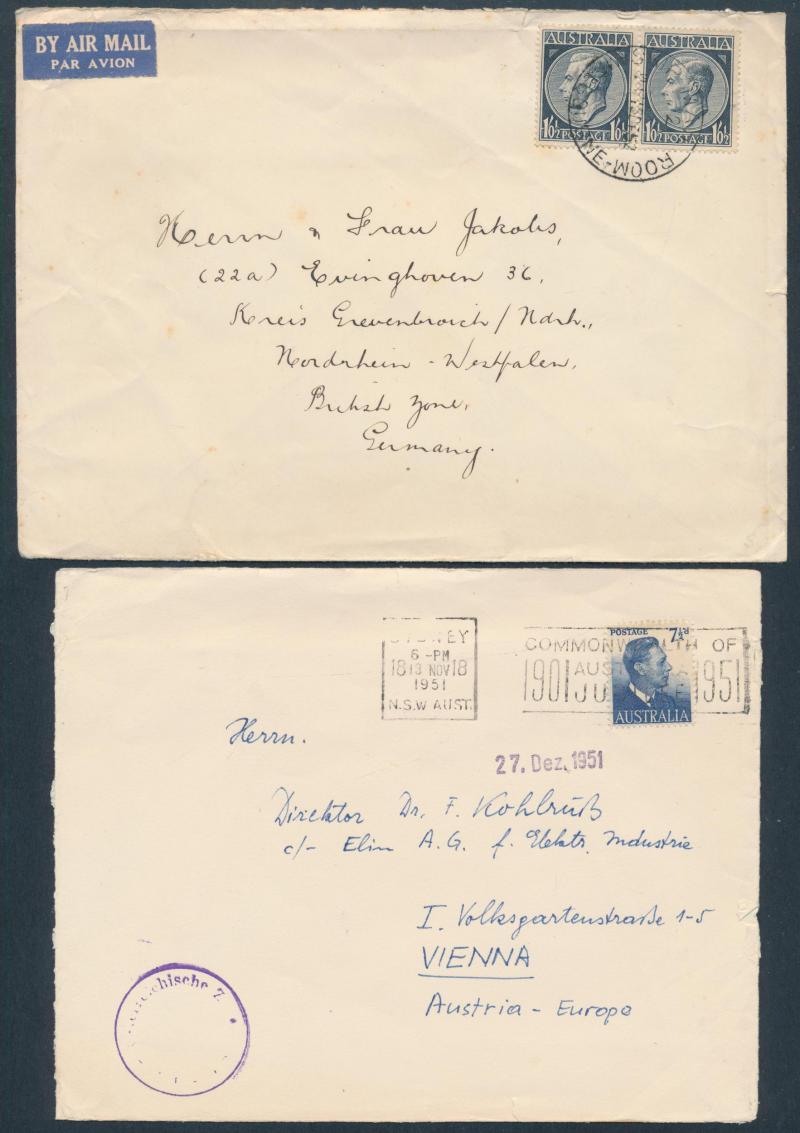 BY AIR MAIL
PAR AVION
AUSTRALIA AUSTRALIA
1'6½ POSTAGE 1'6½ 1'6½ POSTAGE 1'6½
Herrn & Frau Jakobs,
(22a) Evinghoven 36,
Kreis Grevenbroich/Ndrh.,
Nordrhein - Westfalen,
British Zone,
Germany.
SYDNEY
6 -PM
18 13 NOV 18
1951
N.S.W AUST.
COMMONWEALTH OF
AUST
1901 JU 1951
POSTAGE 7½d
AUSTRALIA
27. Dez. 1951
Herrn.
Direktor Dr. F. Kohlruß
c/- Elin A.G. f. Elektr. Industrie
I. Volksgartenstraße 1-5
VIENNA
Austria - Europe